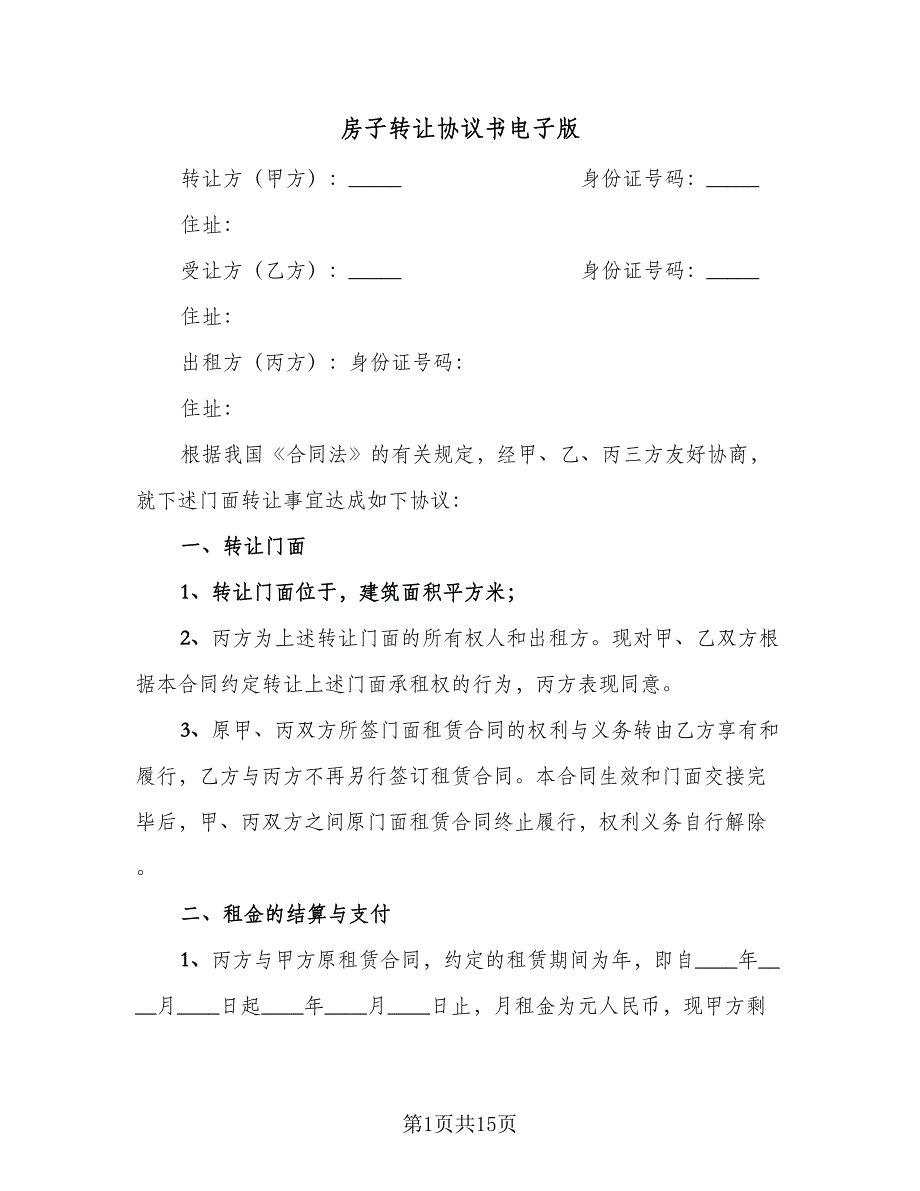 房子转让协议书电子版
转让方（甲方）：_____ 身份证号码：_____
住址：
受让方（乙方）：_____ 身份证号码：_____
住址：
出租方（丙方）：身份证号码：
住址：
根据我国《合同法》的有关规定，经甲、乙、丙三方友好协商，
就下述门面转让事宜达成如下协议：
一、转让门面
1、转让门面位于，建筑面积平方米；
2、丙方为上述转让门面的所有权人和出租方。现对甲、乙双方根
据本合同约定转让上述门面承租权的行为，丙方表现同意。
3、原甲、丙双方所签门面租赁合同的权利与义务转由乙方享有和
履行，乙方与丙方不再另行签订租赁合同。本合同生效和门面交接完
毕后，甲、丙双方之间原门面租赁合同终止履行，权利义务自行解除
。
二、租金的结算与支付
1、丙方与甲方原租赁合同，约定的租赁期间为年，即自____年__
__月____日起____年____月____日止，月租金为元人民币，现甲方剩
第1页共15页